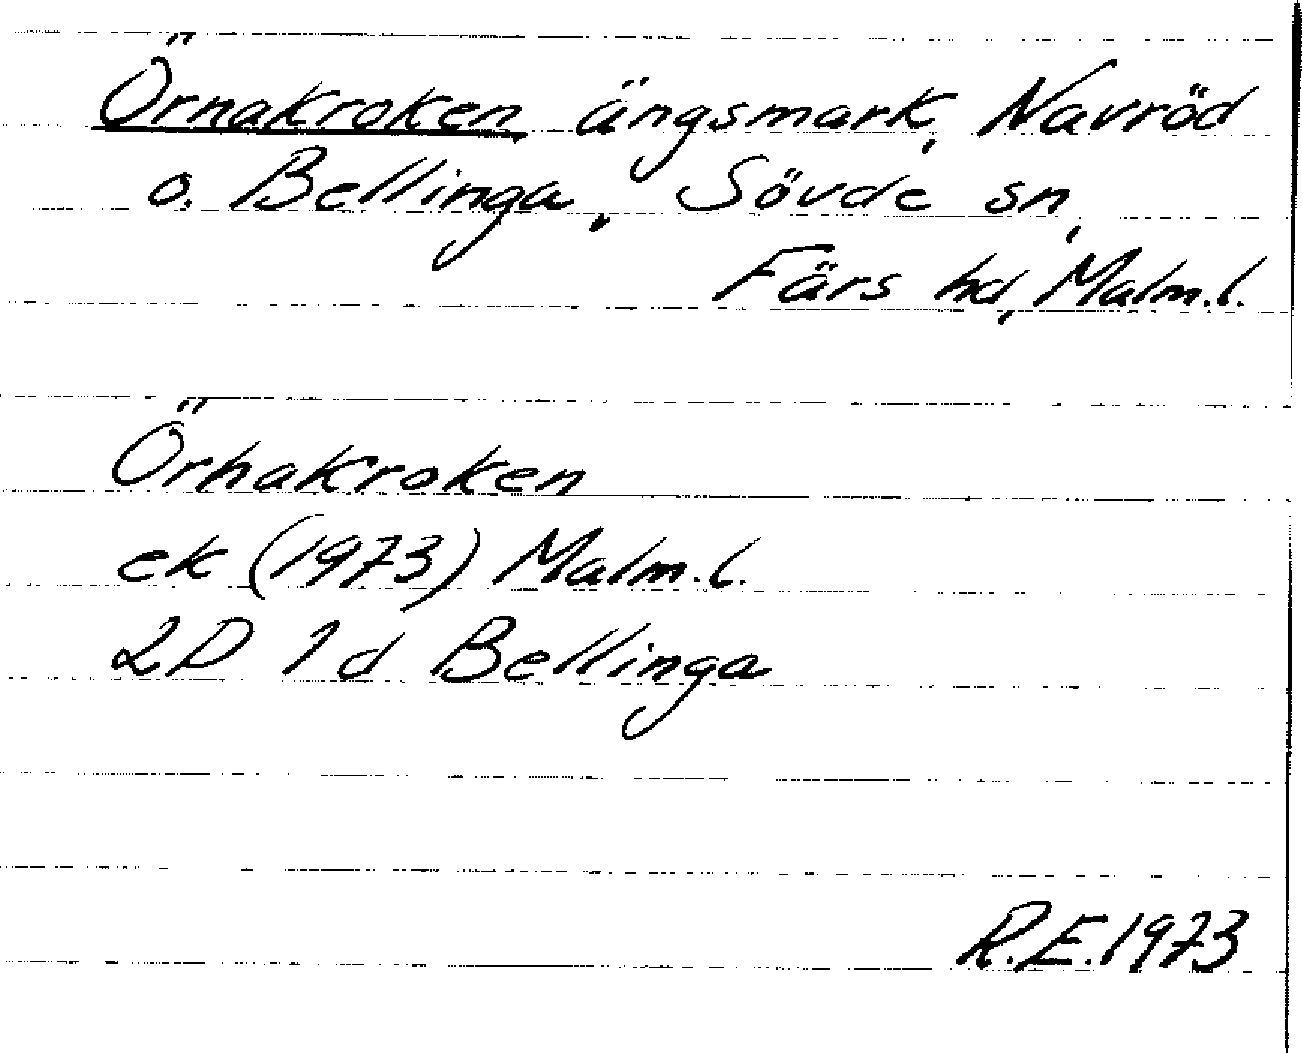 Örnakroken, ängsmark, Navröd
o. Bellinga, Sövde sn,
Färs hd, Malm.l.
Örnakroken
ek (1973) Malm.l.
2D 1d Bellinga
R.E.1973